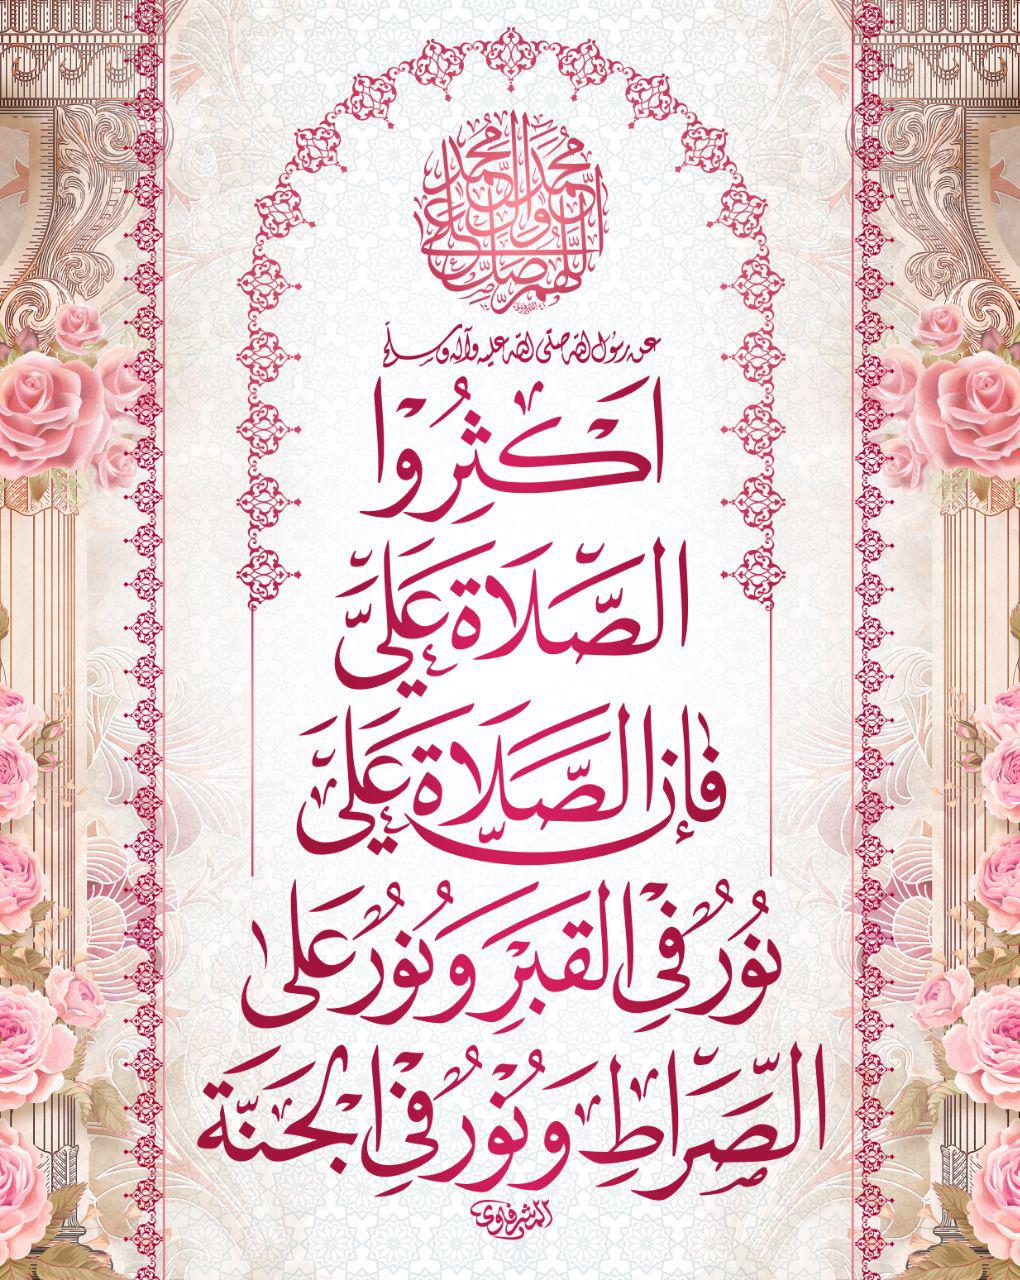 اللهم صل على محمد وال محمد
عن رسول الله صلى الله عليه وآله وسلم
اَكثِرُوا
الصَّلَاةَ عَلَيَّ
فَإِنَّ الصَّلَاةَ عَلَيَّ
نُورٌ فِي القَبرِ وَنُورٌ عَلَى
الصِّرَاطِ وَنُورٌ فِي الجَنَّة
المشرفاوي